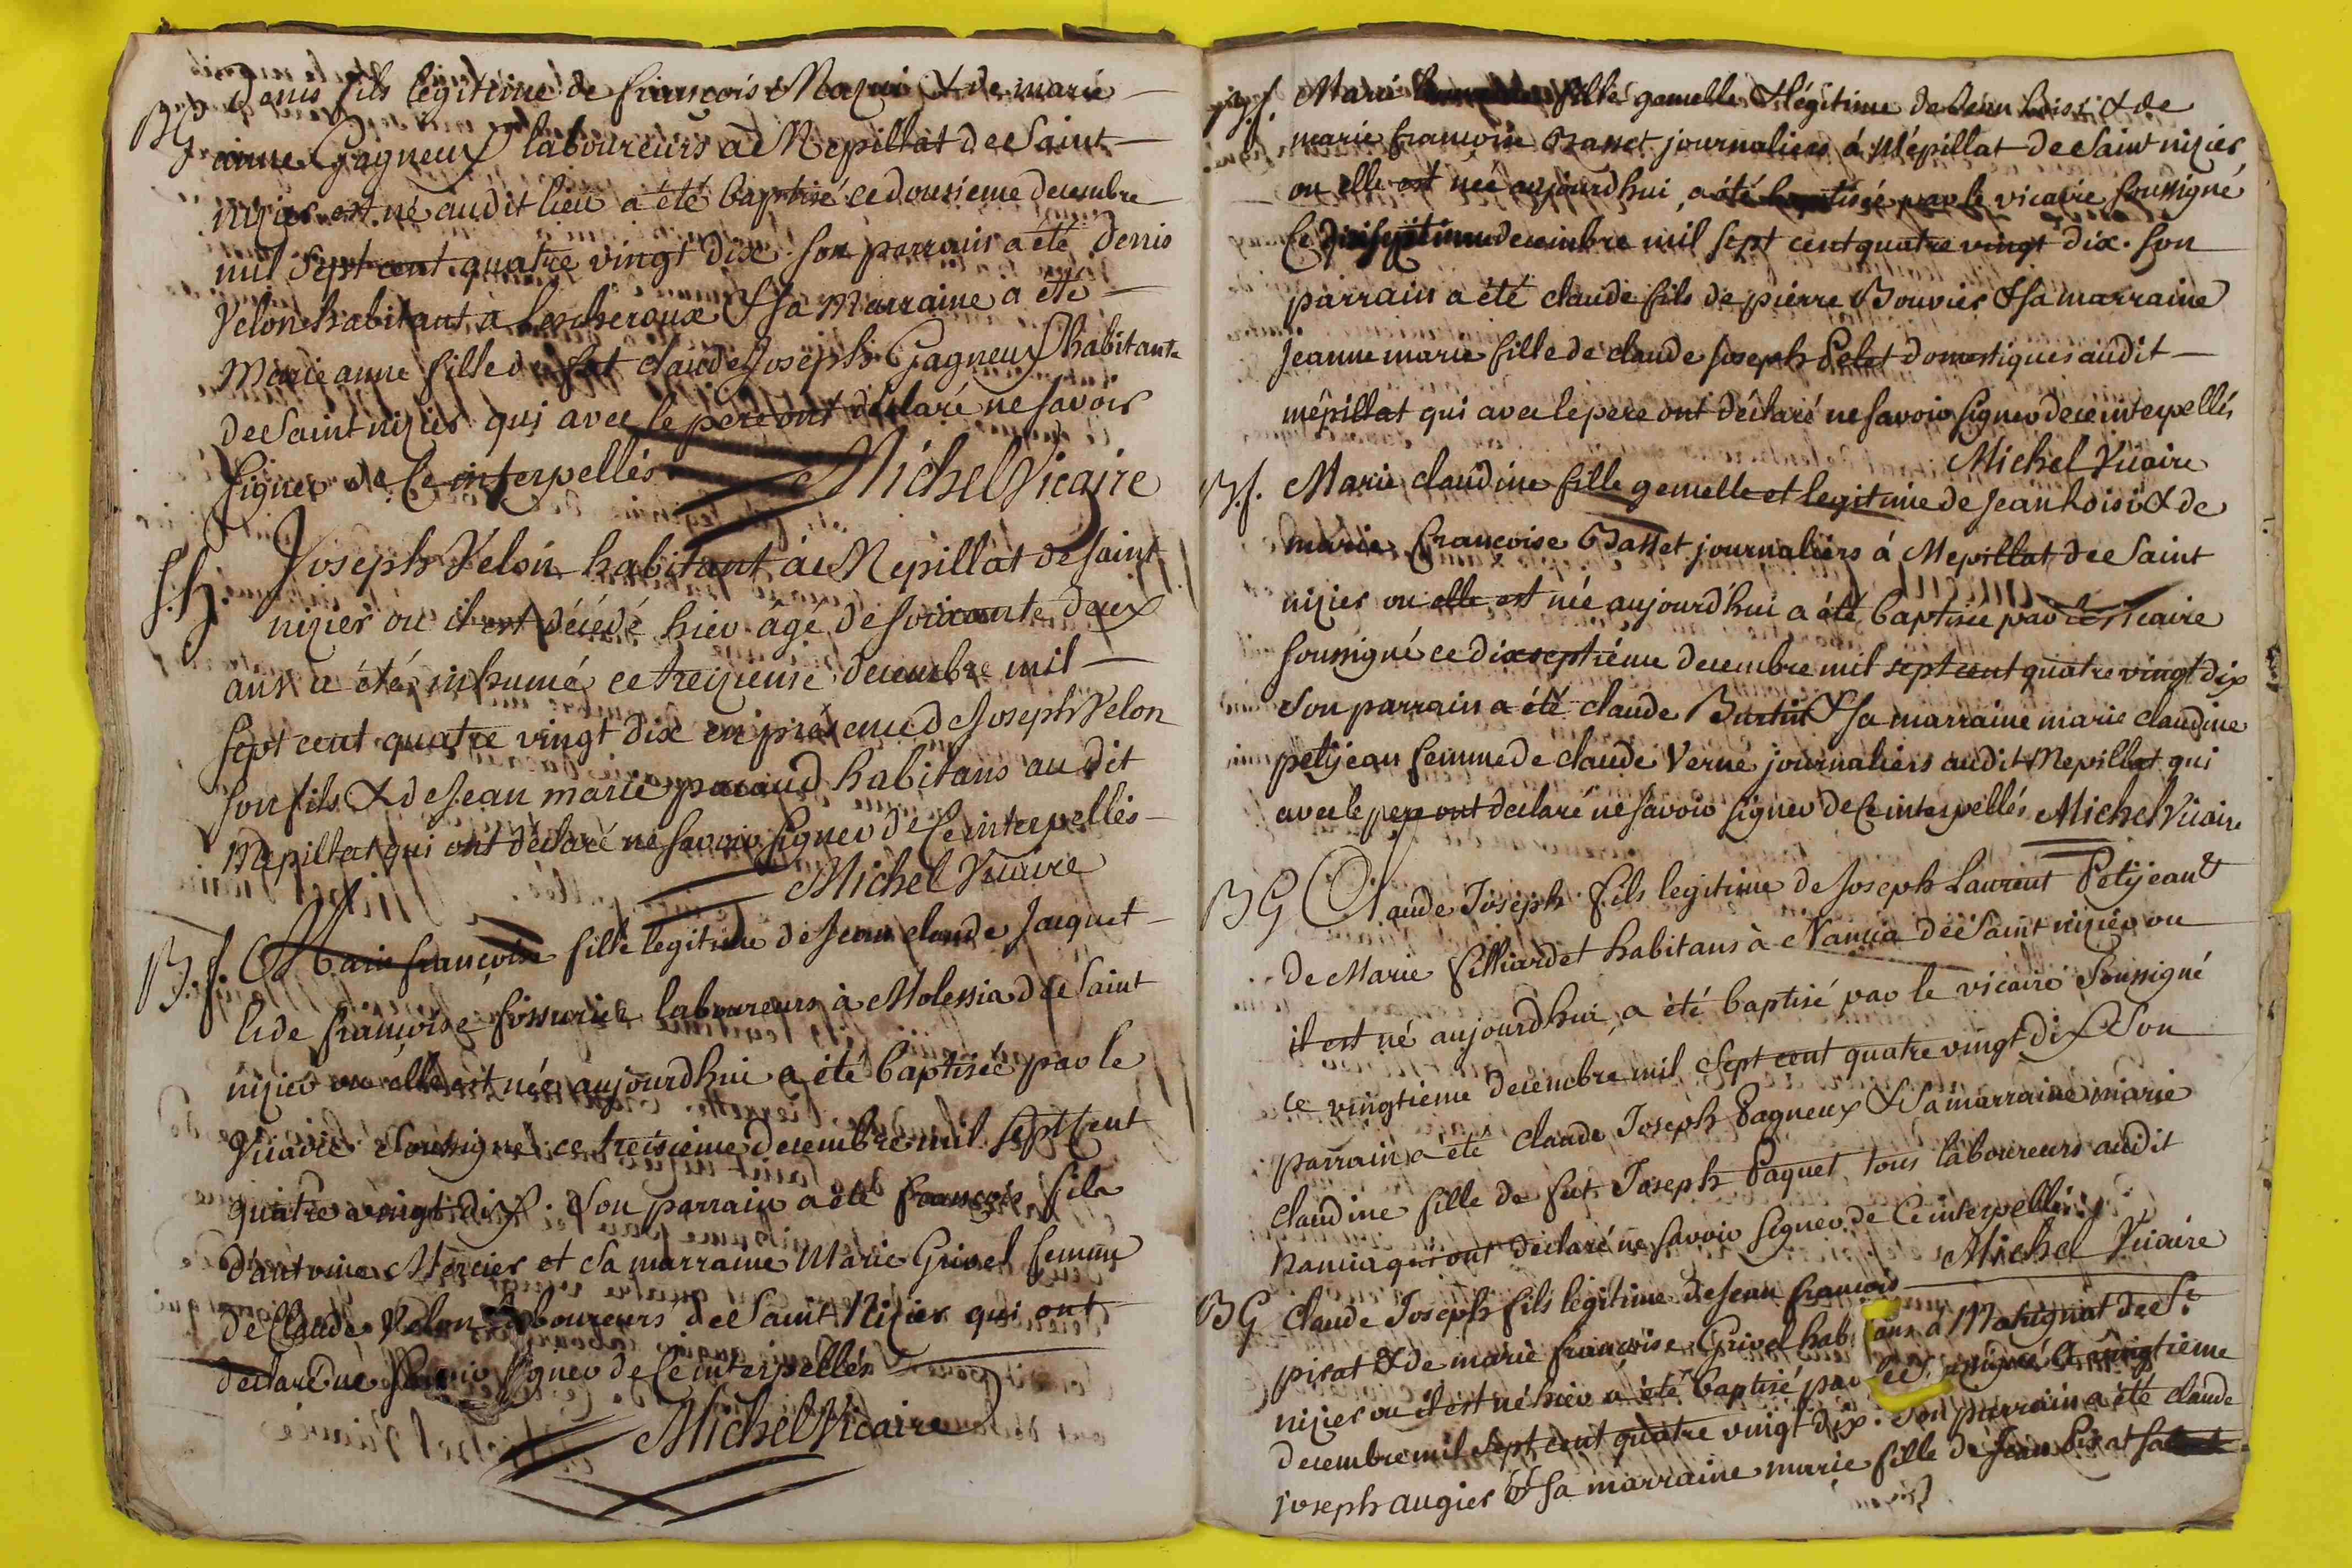 BG Denis fils légitime de françois Mazui & de marie
anne Gagneux laboureurs à Mepillat de Saint
nizier est né audit lieu a été baptisé ce dousieme decembre
mil sept cent quatre vingt dix. son parrain a été denis
Velon habitant a lescheroux & sa Marraine a été
Marie anne fille de fut claude Joseph Gagneux habitante
de Saint nizier qui avec le pere ont déclaré ne savoir
signer de ce interpellés Michel Vicaire
S.h. Joseph Velon habitant à Mepillat de saint
nizier ou il est décédé hier agé de soixante deux
ans a été inhumé ce treizieme decembre mil
sept cent quatre vingt dix en présence de Joseph Velon
son fils & de Jean marie pacaud habitans au dit
Mepillat qui ont déclaré ne savoir signer de ce interpellés
Michel Vicaire
B.f. Marie françoise fille legitime de Jean claude Jacquet
& de françoise fissurier laboureurs à Molessia de Saint
nizier ou elle est née aujourdhui a été baptisée par le
Vicaire Soussigné ce treisieme decembre mil sept cent
quatre vingt dix. Son parrain a été françois fils
d'antoine Mercier et sa marraine Marie Grivel femme
de Claude Velon laboureurs de Saint Nizier qui ont
declaré ne savoir signer de ce interpellés
Michel Vicaire
B.f. Marie fille gemelle & légitime de Jean Loisi & de
marie françoise Basset journaliers à Mépillat de Saint nizier
ou elle est née aujourdhui a été baptisée par le vicaire soussigné
ce dixseptieme decembre mil sept cent quatre vingt dix. son
parrain a été claude fils de pierre Bouvier & sa marraine
Jeanne marie fille de claude Joseph Pelet domestiques audit
mépillat qui avec le pere ont déclaré ne savoir signer de ce interpellés
Michel Vicaire
B.f. Marie claudine fille gemelle et legitime de Jean Loisi & de
marie françoise Basset journaliers à Mepillat de Saint
nizier ou elle est née aujourd'hui a été baptisée par le vicaire
soussigné ce dixseptiéme decembre mil sept cent quatre vingt dix
Son parrain a été claude Burtin & sa marraine marie claudine
petijean femme de claude Verne journaliers audit Mepillat qui
avec le pere ont declaré ne savoir signer de ce interpellés Michel Vicaire
BG Claude Joseph fils legitime de Joseph Laurent Petijean &
de Marie filliardet habitans à Nancia de Saint nizier ou
il est né aujourdhui a été baptisé par le vicaire soussigné
ce vingtiéme decembre mil sept cent quatre vingt dix Son
parrain a été claude Joseph Pagneux & Sa marraine marie
claudine fille de fut Joseph Paquet tous laboureurs audit
nancia qui ont declaré ne savoir signer de ce interpellés
Michel Vicaire
BG Claude Joseph fils legitime de Jean françois
pirat & de marie françoise Grivel hab ans à Marignat de St
nizier ou il est né hier a été baptisé par le ce vingtieme
decembre mil sept cent quatre vingt dix. Son parrain a été claude
joseph augier & sa marraine marie fille de Jean Pirat